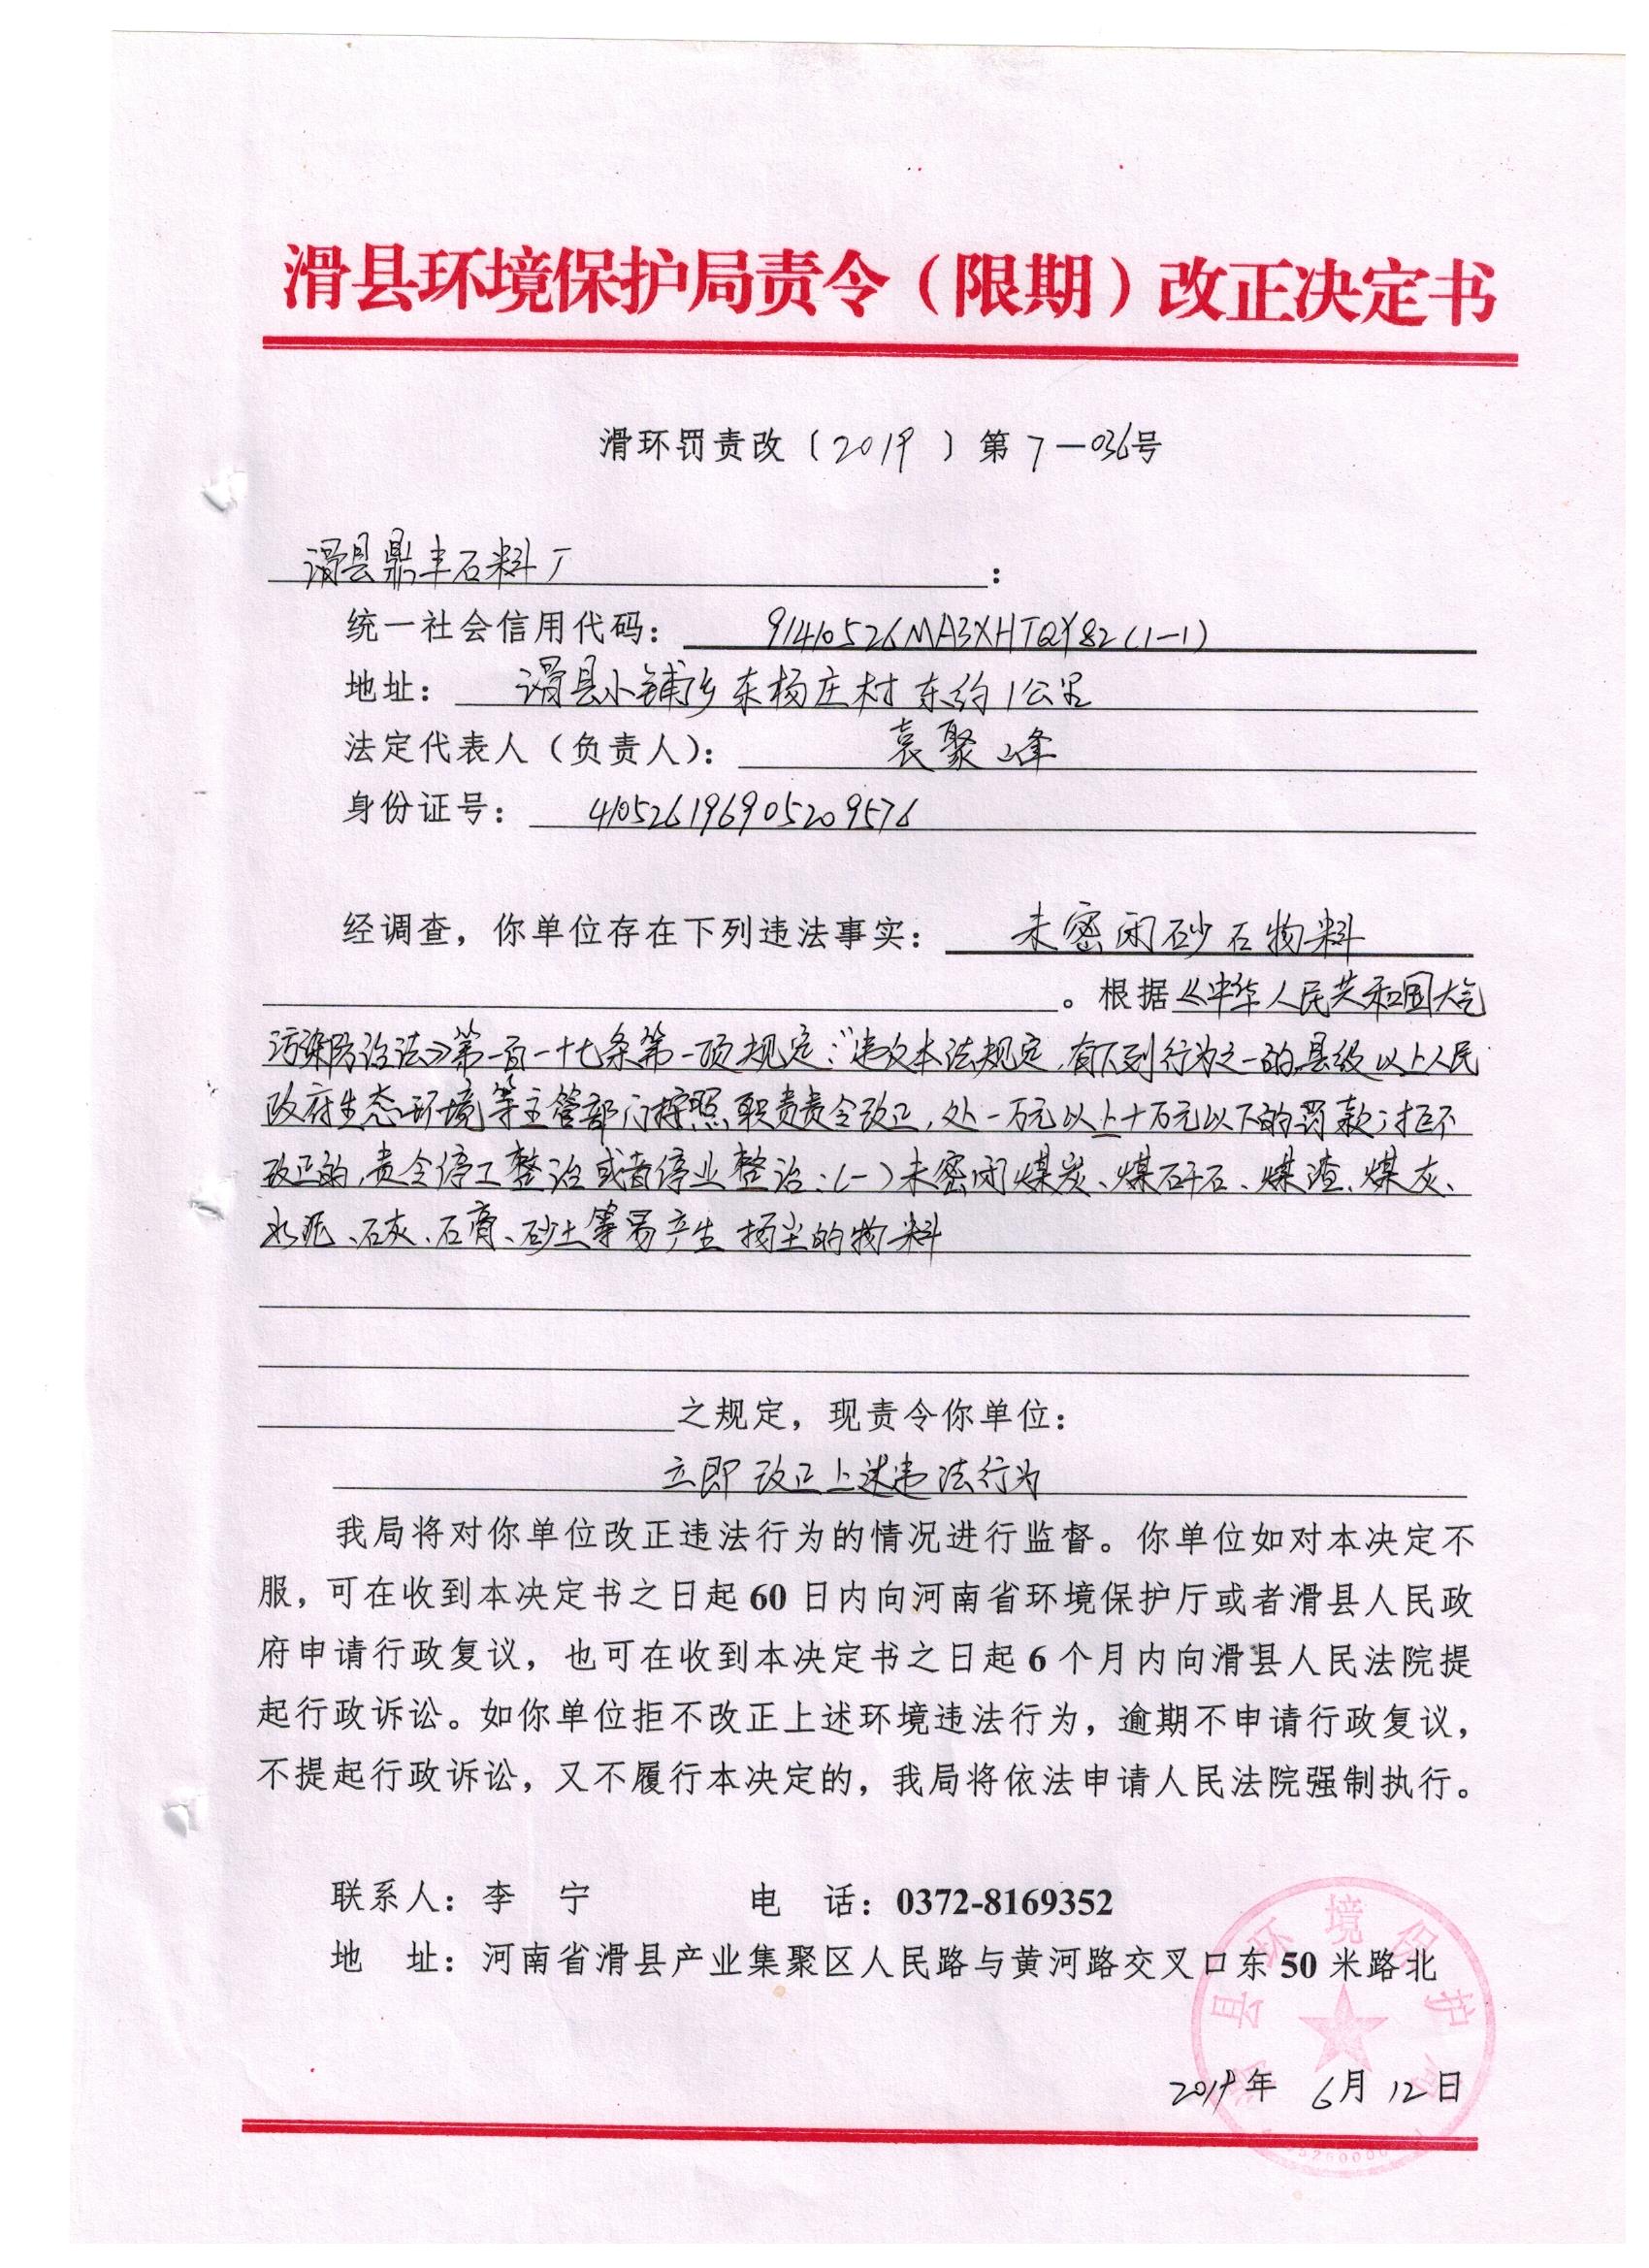 滑县环境保护局责令（限期）改正决定书
滑环罚责改〔2019〕第7-036号
滑县鼎丰石料厂：
统一社会信用代码：91410526MA3XHTQY82(1-1)
地址：滑县小铺乡东杨庄村东约1公里
法定代表人（负责人）：袁聚峰
身份证号：410526196905209576
经调查，你单位存在下列违法事实：未密闭砂石物料
。根据《中华人民共和国大气
污染防治法》第一百一十七条第一项规定：“违反本法规定，有下列行为之一的，县级以上人民
政府生态环境等主管部门按照职责责令改正，处一万元以上十万元以下的罚款；拒不
改正的，责令停工整治或者停业整治：(一)未密闭煤炭、煤矸石、煤渣、煤灰、
水泥、石灰、石膏、砂土等易产生扬尘的物料
之规定，现责令你单位：
立即改正上述违法行为
我局将对你单位改正违法行为的情况进行监督。你单位如对本决定不
服，可在收到本决定书之日起60日内向河南省环境保护厅或者滑县人民政
府申请行政复议，也可在收到本决定书之日起6个月内向滑县人民法院提
起行政诉讼。如你单位拒不改正上述环境违法行为，逾期不申请行政复议，
不提起行政诉讼，又不履行本决定的，我局将依法申请人民法院强制执行。
联系人：李 宁 电 话：0372-8169352
地 址：河南省滑县产业集聚区人民路与黄河路交叉口东50米路北
滑县环境保护局
2019年 6月 12日